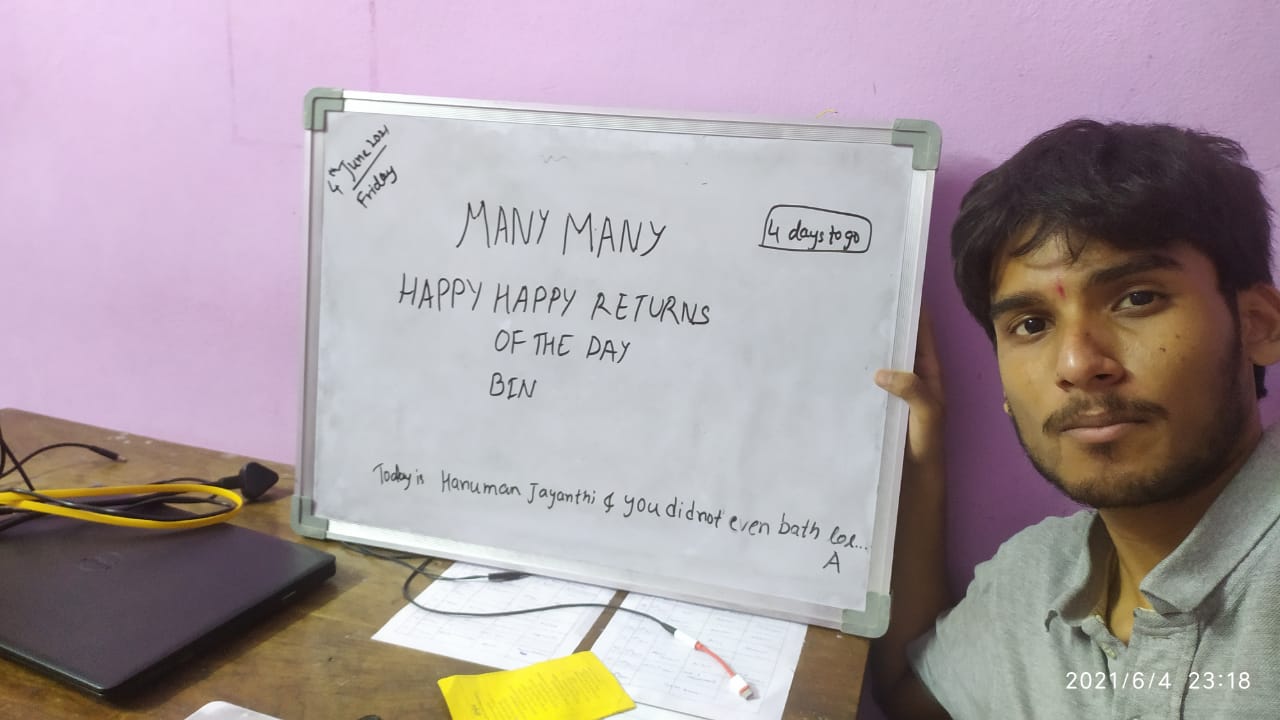 4th June 2021
Friday
4 days to go
MANY MANY
HAPPY HAPPY RETURNS
OF THE DAY
BIN
Today is Hanuman Jayanthi & you did not even bath lol...
A
2021/6/4 23:18